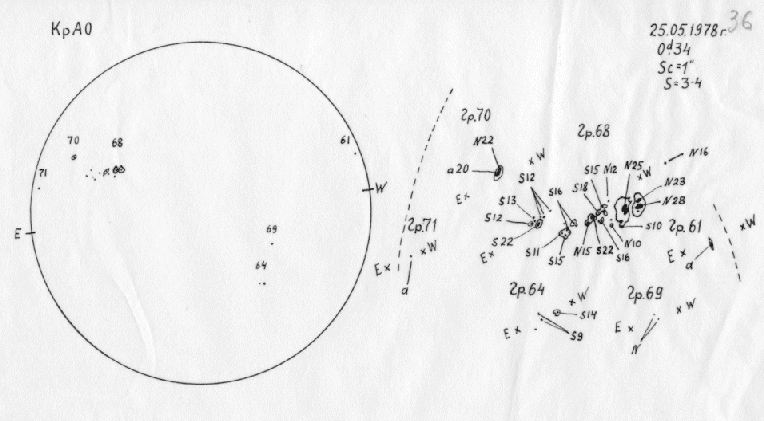 КрАО
36
25.05.1978г.
0ᵈ34
Sc=1"
S=3-4
70
68
61
71
W
E
69
64
2р.70
N22
a20
E×
×W
2р.68
S12
S16
S13
S12
S22
S11
S15
S18
S15
N12
N25
×W
N16
N23
N28
S10
N10
S16
S22
N15
E×
2р.71
E×
×W
a
2р.61
×W
E×
a
2р.64
×W
S14
E×
S9
2р.69
×W
E×
N